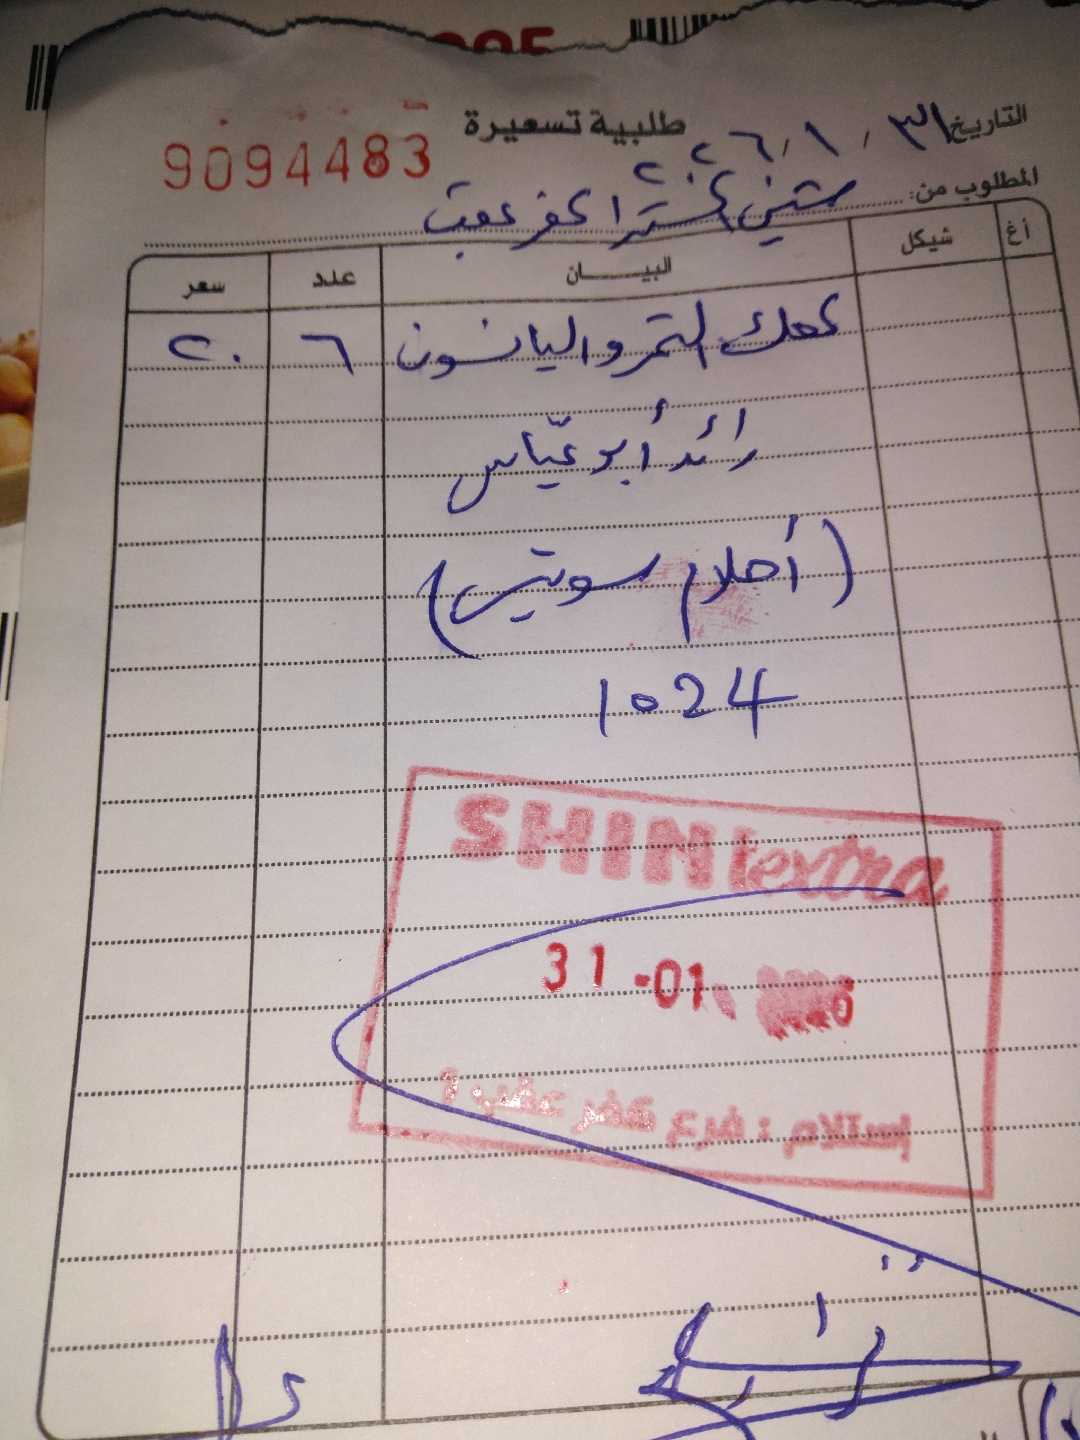 طلبية تسعيرة
9094483
التاريخ ٣١ / ١ / ٢٠٢٦
المطلوب من: شني اكسترا كفر عقب
أغ شيكل البيـــــان عدد سعر
كعك التمر واليانسون ٦ ٢٠
رائد أبو عياس
(أحلام سويتس)
1024
SHINI extra
31-01
استلام : فرع كفر عقب